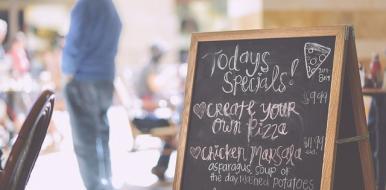 Todays
Specials!
Create your $9.99
own Pizza
Chicken Marsala $11.99
asparagus, soup of
the day
potatoes